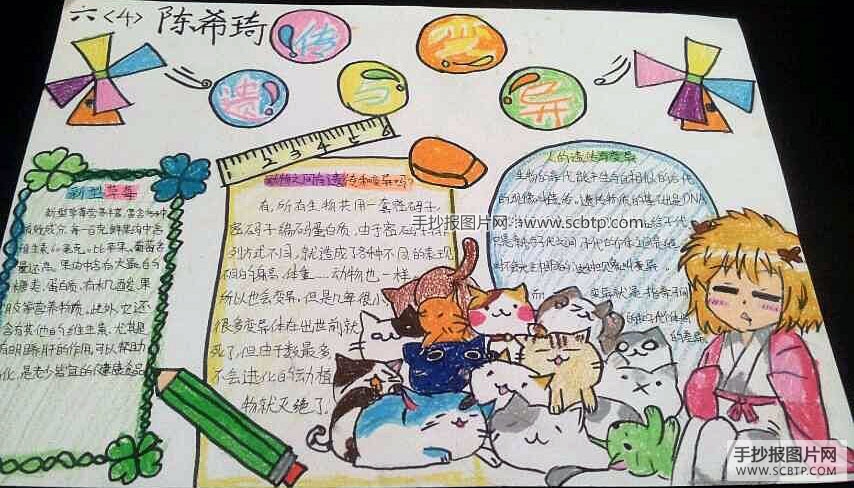 六<4> 陈希琦
遗传与变异
新型草莓
新型草莓营养丰富,富含多种
有效成分,每一百克鲜草莓肉中含
维生素C 毫克,比苹果、葡萄含
量还高。果肉中含有大量
糖类、蛋白质、有机酸、果
胶等营养物质,此外它还
含有其他的维生素,尤其是
有明目养肝的作用,可以帮助
化,是老少皆宜的健康食品
动物之间有遗传和变异吗?
在所有生物共用一套遗传密码子,
密码子编码蛋白质,由于密码子排
列方式不同,就造成了各种不同的表现
不同的身高、体重……动物也一样。
所以也会变异,但是几率很小
很多变异体在出世前就
死了,但由于数最多
不会进化的动植
物就灭绝了。
人的遗传与变异
生物的亲代能产生与自己相似的后代
的现象叫遗传。遗传物质的基础是DNA
给子代
只是亲代与子代之间,子代的个体之间
变异
变异就是指亲子间
手抄报图片网
www.scbtp.com
手抄报图片网
WWW.SCBTP.COM